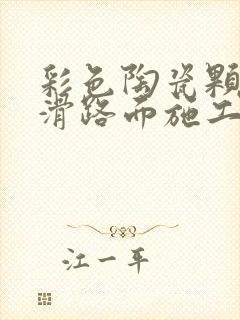 彩色陶瓷颗
滑路面施工
江一平